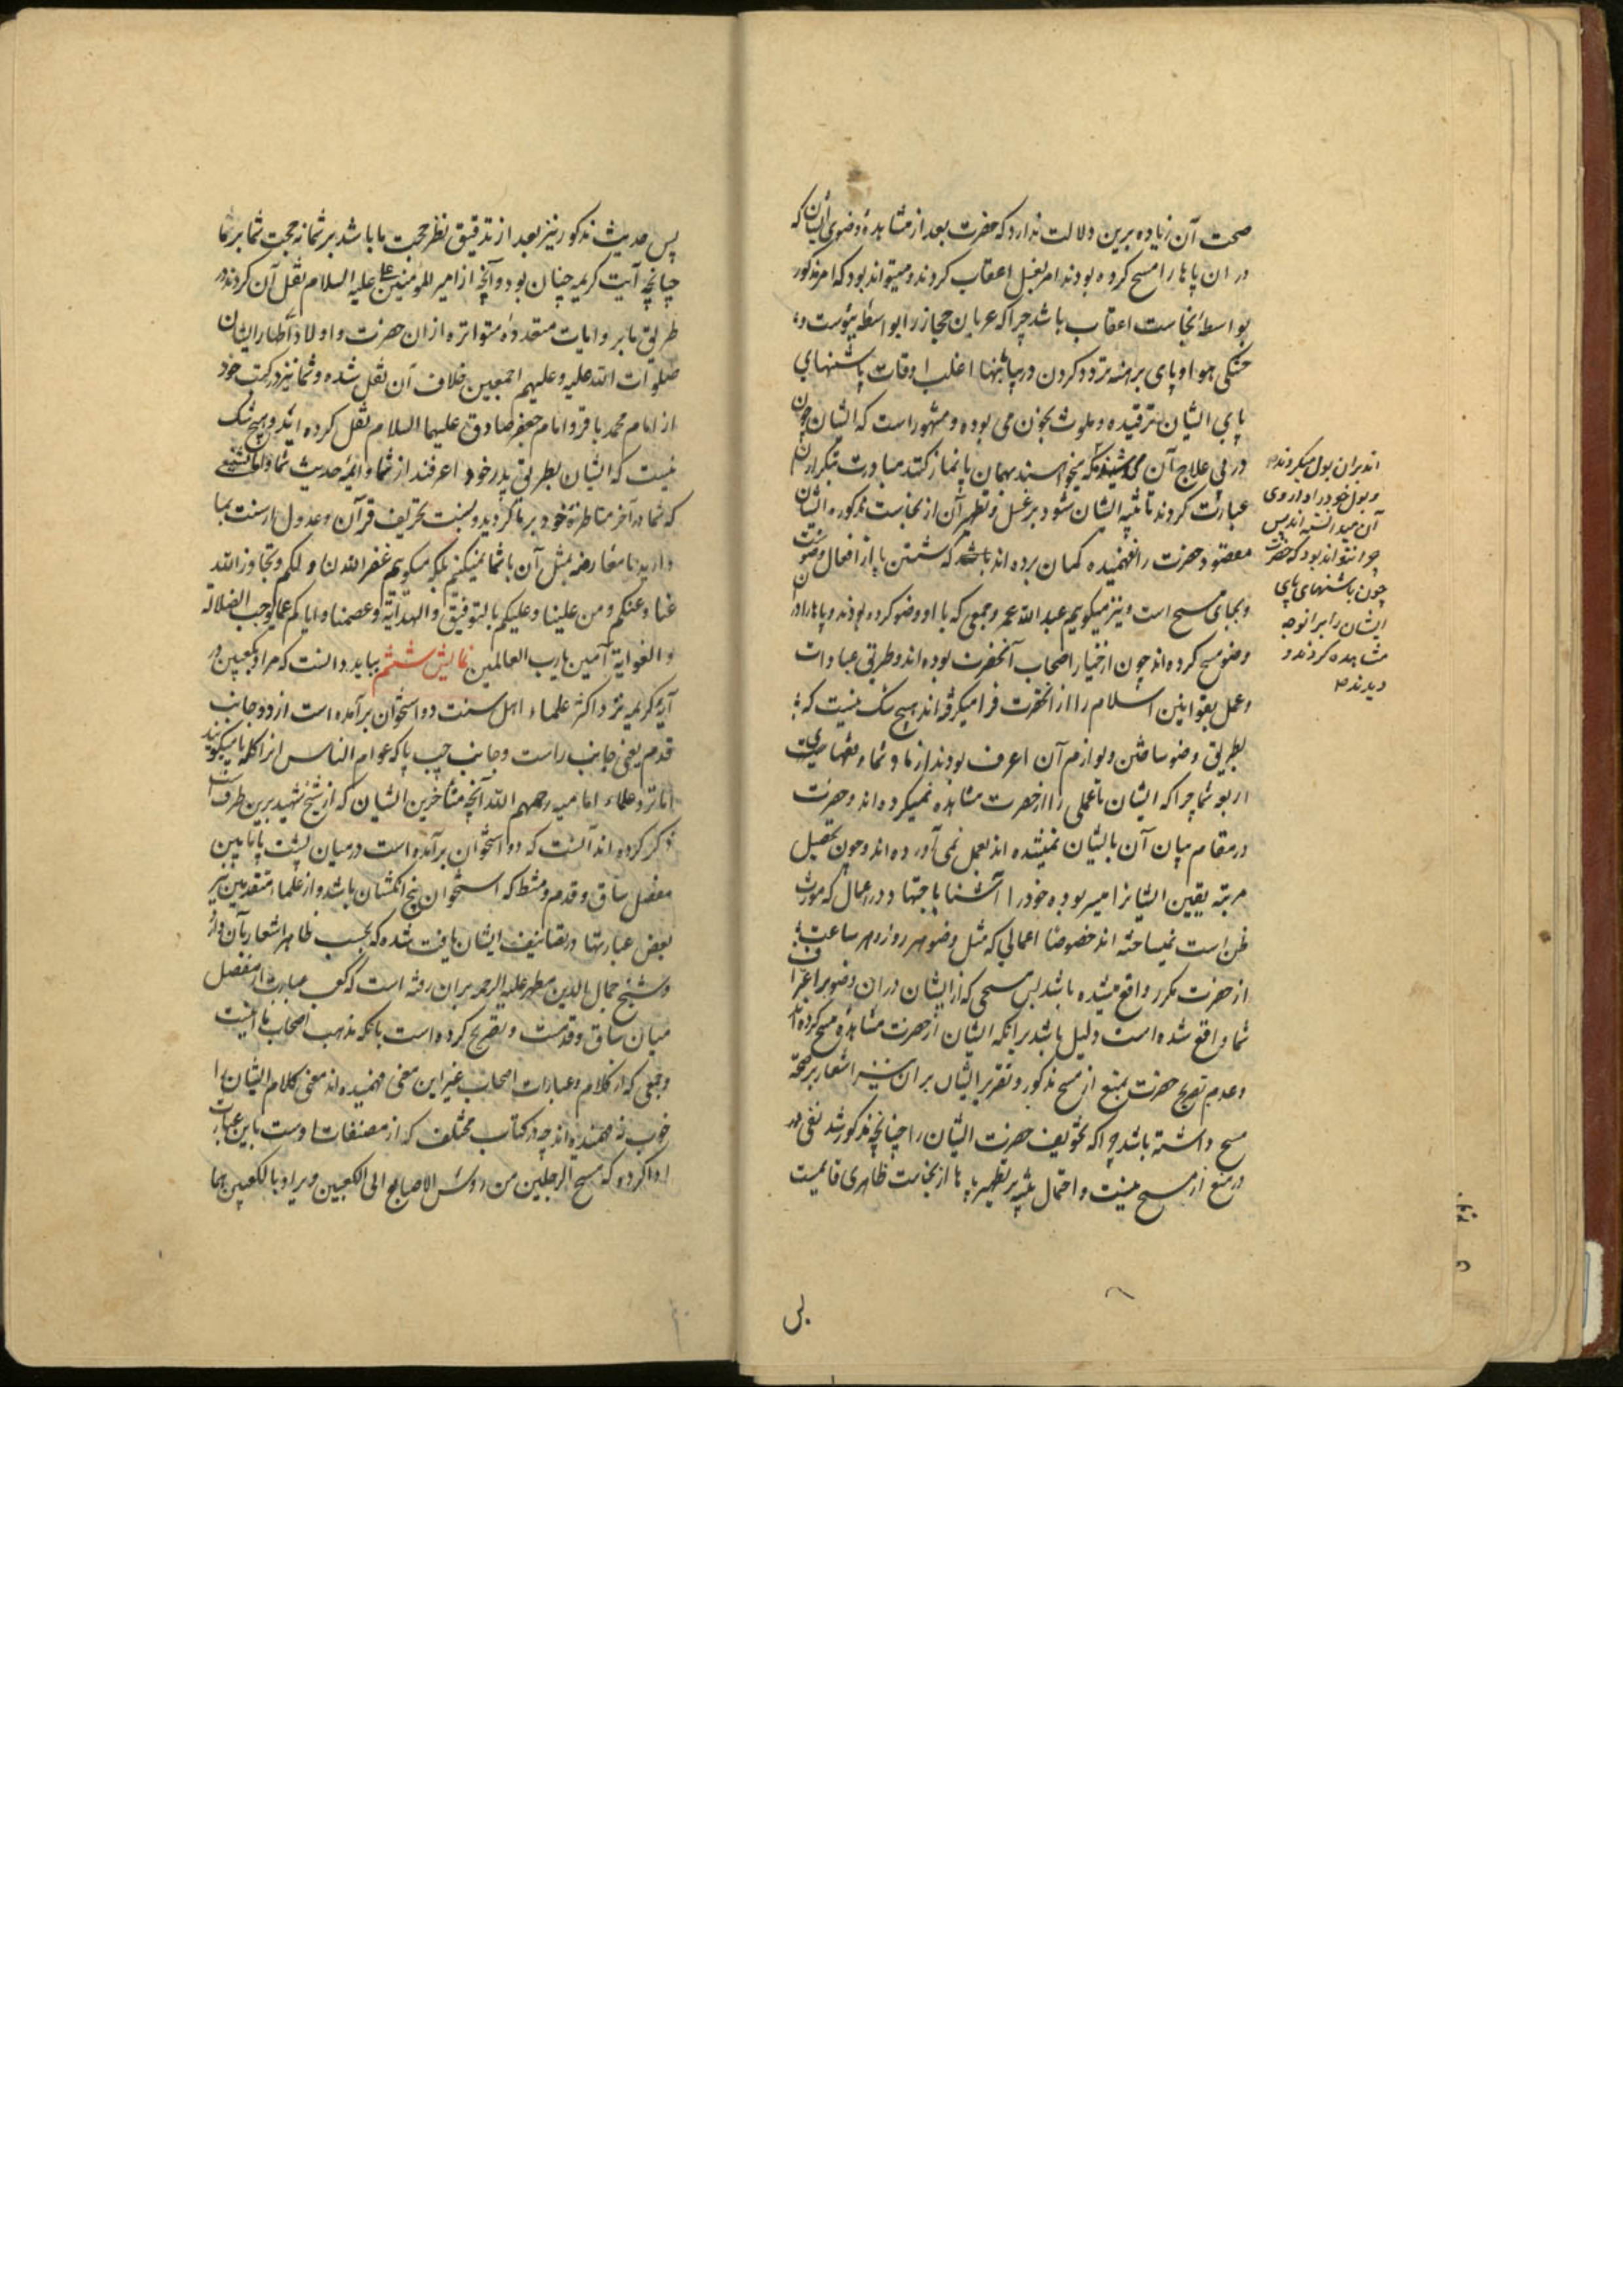 صحت آن زیاده برین دلالت ندارد که حضرت بعد از مشاهدهٔ وضوی ایشان که
در ان پاها را مسح کرده بودند امر بغسل اعقاب کردند و میتواند بود که امر مذکور
بواسطهٔ نجاست اعقاب باشد چرا که عربان حجاز را بواسطهٔ یبوست و
خشکی هوا و پای برهنه تردد کردن در بیابانها اغلب اوقات پاشنهای
پای ایشان ترقیده و ملوث بخون می بوده و مشهور است که ایشان چون
در پی علاج آن می شدند که میخواستند بهمان پا نماز کنند مبادرت
عبارت کردند تا تنبیه ایشان شود بر غسل و تطهیر آن از نجاست مذکوره ایشان
مقصود حضرت را نفهمیده کمان برده اند که شستن پا از افعال وضوست
و بجای مسح است و نیز میکویم عبد الله عمر و جمعی که با او وضو کرده بودند و پاها را در ان
وضو مسح کرده اند چون از خیار اصحاب آنحضرت بوده اند و طریق عبادات
و عمل بقوانین اسلام را از آنحضرت فرا میکرفته اند هیچ شک نیست که
بطریق وضو ساختن و لوازم آن اعرف بودند از ما و شما و فقهای
اربعه شما چرا که ایشان تا عملی را از حضرت مشاهده نمیکرده اند و حضرت
در مقام بیان آن بایشان نمیشده اند بعمل نمی آورده اند و چون تحصیل
مرتبه یقین ایشانرا میسر بوده خود را آشنا باجتهاد در اعمال که مورث
ظن است نمیساخته اند خصوصا اعمالی که مثل وضو هر روز و هر ساعت
از حضرت مکرر واقع میشده باشد پس مسحی که از ایشان در ان وضو باعتراف
شما واقع شده است دلیل باشد بر انکه ایشان از حضرت مشاهدهٔ مسح کرده اند
و عدم تصریح حضرت بمنع از مسح مذکور و تقریر ایشان بر ان نیز اشعار بر صحة
مسح داشته باشد چرا که تخویف حضرت ایشان را چنانچه مذکور شد نص
در منع از مسح نیست و احتمال تنبیه بر تطهیر پاها از نجاست ظاهری قایمست
اند بران بول میکردند
و بول خود را داروی
آن میدانسته اند پس
چرا نتواند بود که حضرت
چون پاشنهای پای
ایشان را بر انوجه
مشاهده کردند و
دیدند
پس
پس حدیث مذکور نیز بعد از تدقیق نظر حجت ما باشد بر شما نه حجت شما بر ما
چنانچه آیت کریمه چنان بود و آنچه از امیر المؤمنین علی علیه السلام نقل آن کردند در
طریق ما بروایات متعددهٔ متواتره از ان حضرت و اولاد اطهار ایشان
صلوات الله علیه و علیهم اجمعین خلاف آن نقل شده و شما نیز در کتب خود
از امام محمد باقر و امام جعفر صادق علیهما السلام نقل کرده اید و هیچ شک
نیست که ایشان بطریق پدر خود اعرفند از شما و ائمهٔ حدیث شما و اما تشنیع
که شما در آخر مناظرهٔ خود بر ما کردید و نسبت تحریف قرآن و عدول از سنت بما
دادید ما معارضه بمثل آن با شما نمیکنیم بلکه میکویم غفر الله لنا و لکم و تجاوز الله
عنا و عنکم و من علینا و علیکم بالتوفیق و الهدایة و عصمنا و ایاکم عما یوجب الضلالة
و الغوایة آمین یا رب العالمین نمایش ششم بباید دانست که مراد بکعبین در
آیهٔ کریمه نزد اکثر علماء اهل سنت دو استخوان برآمده است از دو جانب
قدم یعنی جانب راست و جانب چپ پا که عوام الناس انرا کله پا میکویند
اما نزد علماء امامیه رحمهم الله آنچه متأخرین ایشان که از شیخ شهید برین طرف است
ذکر کرده اند آنست که دو استخوان برآمده است در میان پشت پا مابین
مفصل ساق و قدم و مشط که استخوان پنج انکشتان باشد و از علماء متقدمین نیز
بعض عبارتها در تصانیف ایشان یافت شده که بحسب ظاهر اشعار بآن دارد
و شیخ جمال الدین مطهر علیه الرحمه بران رفته است که کعب عبارت از مفصل
میان ساق و قدمست و تصریح کرده است بانکه مذهب اصحاب ما اینست
و جمعی که از کلام و عبارات اصحاب غیر این معنی فهمیده اند معنی کلام ایشان را
خوب نفهمیده اند چه در کتاب مختلف که از مصنفات اوست باین عبارت
ادا کرده که مسح الرجلین من رؤس الاصابع الی الکعبین و یراد بالکعبین هما